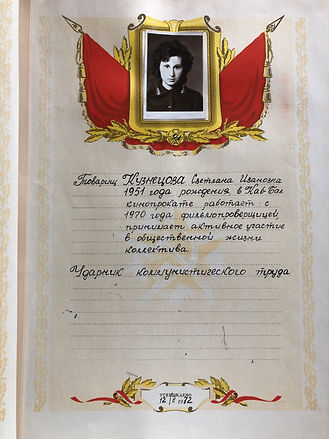 Товарищ КУЗНЕЦОВА Светлана Ивановна
1951 года рождения, в Каб-Бал
кинопрокате работает с
1970 года фильмопроверщицей,
принимает активное участие
в общественной жизни
коллектива.
Ударник коммунистического труда
УТВЕРЖДЕНО